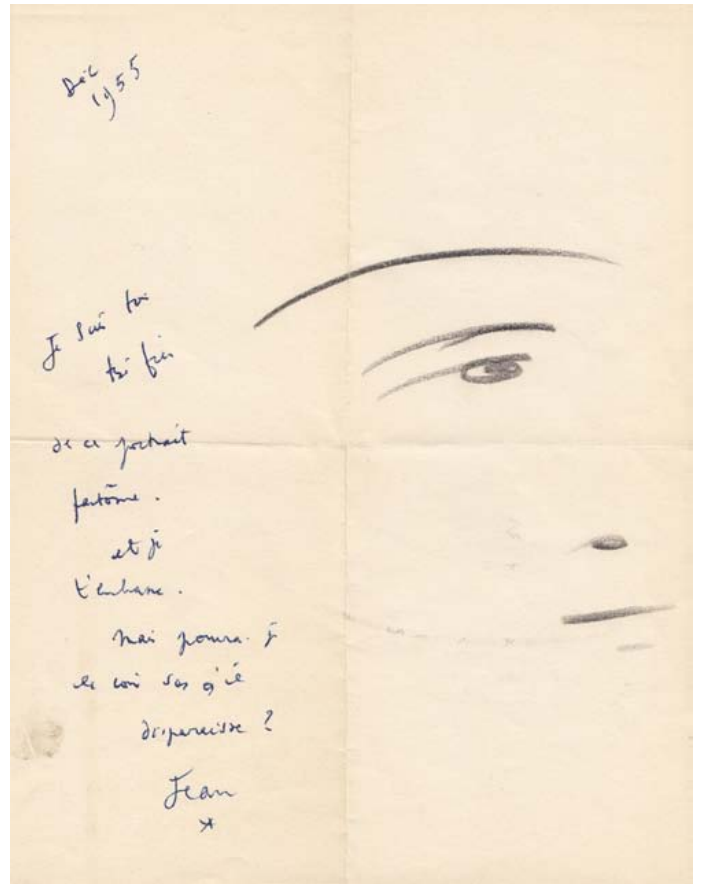 Déc
1955
Je suis
très fier
de ce portrait
fantôme.
et je
t'embrasse.
mais pourrai-je
sans qu'il
disparaisse ?
Jean